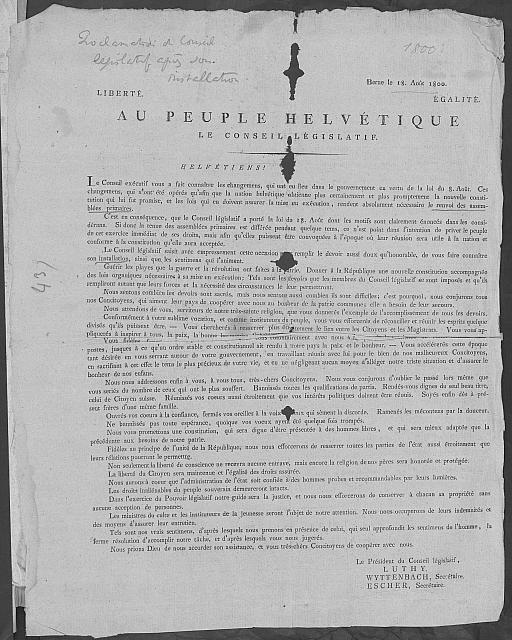 Proclamation du Conseil
législatif après son
installation.
1800.
Berne le 18. Août 1800.
LIBERTÉ. ÉGALITÉ.
AU PEUPLE HELVÉTIQUE
LE CONSEIL LÉGISLATIF.
HELVÉTIENS!
Le Conseil exécutif vous a fait connaître les changemens, qui ont eu lieu dans le gouvernement en vertu de la loi du 8. Août. Ces
changemens, qui n'ont été opérés qu'afin que la nation helvétique obtienne plus certainement et plus promptement la nouvelle consti-
tution qui lui fut promise, et les lois qui en doivent assurer la mise en exécution, rendent absolument nécessaire le renvoi des assem-
blées primaires.
C'est en conséquence, que le Conseil législatif a porté la loi du 18. Août dont les motifs sont clairement énoncés dans les consi-
dérans. Si donc la tenue des assemblées primaires est différée pendant quelque tems, ce n'est point dans l'intention de priver le peuple
de cet exercice immédiat de ses droits, mais afin qu'elles puissent être convoquées à l'époque où leur réunion sera utile à la nation et
conforme à la constitution qu'elle aura acceptée.
Le Conseil législatif saisit avec empressement cette occasion de remplir le devoir aussi doux qu'honorable, de vous faire connaître
son installation, ainsi que les sentimens qui l'animent.
Guérir les playes que la guerre et la révolution ont faites à la patrie. Donner à la République une nouvelle constitution accompagnée
des lois organiques nécessaires à sa mise en exécution: Tels sont les devoirs que les membres du Conseil législatif se sont imposés et qu'ils
rempliront autant que leurs forces et la nécessité des circonstances le leur permettront.
Nous sentons combien les devoirs sont sacrés, mais nous sentons aussi combien ils sont difficiles; c'est pourquoi, nous conjurons tous
nos Concitoyens, qui aiment leur pays de coopérer avec nous au bonheur de la patrie commune; elle a besoin de leur secours.
Nous attendons de vous, serviteurs de notre très-sainte religion, que vous donnerez l'exemple de l'accomplissement de tous les devoirs.
Conformément à votre sublime vocation, et comme instituteurs du peuple, vous vous efforcerez de réconcilier et réunir les esprits quelque
divisés qu'ils puissent être. — Vous chercherez à resserrer plus étroitement le lien entre les Citoyens et les Magistrats. Vous vous ap-
pliquerez à inspirer à tous, la paix, la bonne
Vous
postes, jusques à ce qu'un ordre stable et constitutionnel ait rendu à notre pays la paix et le bonheur. — Vous accélérerez cette époque
tant désirée en vous serrant autour de votre gouvernement, en travaillant réunis avec lui pour le bien de nos malheureux Concitoyens,
en sacrifiant à cet effet le tems le plus précieux de votre vie, et en ne négligeant aucun moyen d'alléger notre triste situation et d'assurer le
bonheur de nos enfans.
Nous nous addressons enfin à vous, à vous tous, très-chers Concitoyens. Nous vous conjurons d'oublier le passé lors même que
vous seriez du nombre de ceux qui ont le plus souffert. Bannissez toutes les qualifications de partis. Rendez-vous dignes du seul beau titre,
celui de Citoyen suisse. Réunissez vos coeurs aussi étroitement que vos intérêts politiques doivent être réunis. Soyez enfin dès à pré-
sent frères d'une même famille.
Ouvrez vos coeurs à la confiance, fermez vos oreilles à la voix de ceux qui sèment la discorde. Ramenés les mécontens par la douceur.
Ne bannissés pas toute espérance, quoique vos voeux ayent été quelque fois trompés.
Nous vous promettons une constitution, qui sera digne d'être présentée à des hommes libres, et qui sera mieux adaptée que la
précédente aux besoins de notre patrie.
Fidèles au principe de l'unité de la République, nous nous efforcerons de resserrer toutes les parties de l'état aussi étroitement que
leurs relations pourront le permettre.
Non seulement la liberté de conscience ne recevra aucune entrave, mais encore la religion de nos pères sera honorée et protégée.
La liberté du Citoyen sera maintenue et l'égalité des droits assurée.
Nous aurons à coeur que l'administration de l'état soit confiée à des hommes probes et recommandables par leurs lumières.
Les droits inaliénables du peuple souverain demeureront intacts.
Dans l'exercice du Pouvoir législatif notre guide sera la justice, et nous nous efforcerons de conserver à chacun sa propriété sans
aucune acception de personnes.
Les ministres du culte et les instituteurs de la jeunesse seront l'objet de notre attention. Nous nous occuperons de leurs indemnités et
des moyens d'assurer leur entretien.
Tels sont nos vrais sentimens, d'après lesquels nous prenons en présence de celui, qui seul approfondit les sentimens de l'homme, la
ferme résolution d'accomplir notre tâche, et d'après lesquels vous nous jugerés.
Nous prions Dieu de nous accorder son assistance, et vous très-chers Concitoyens de coopérer avec nous.
Le Président du Conseil législatif,
LUTHY.
WYTTENBACH, Secrétaire.
ESCHER, Secrétaire.